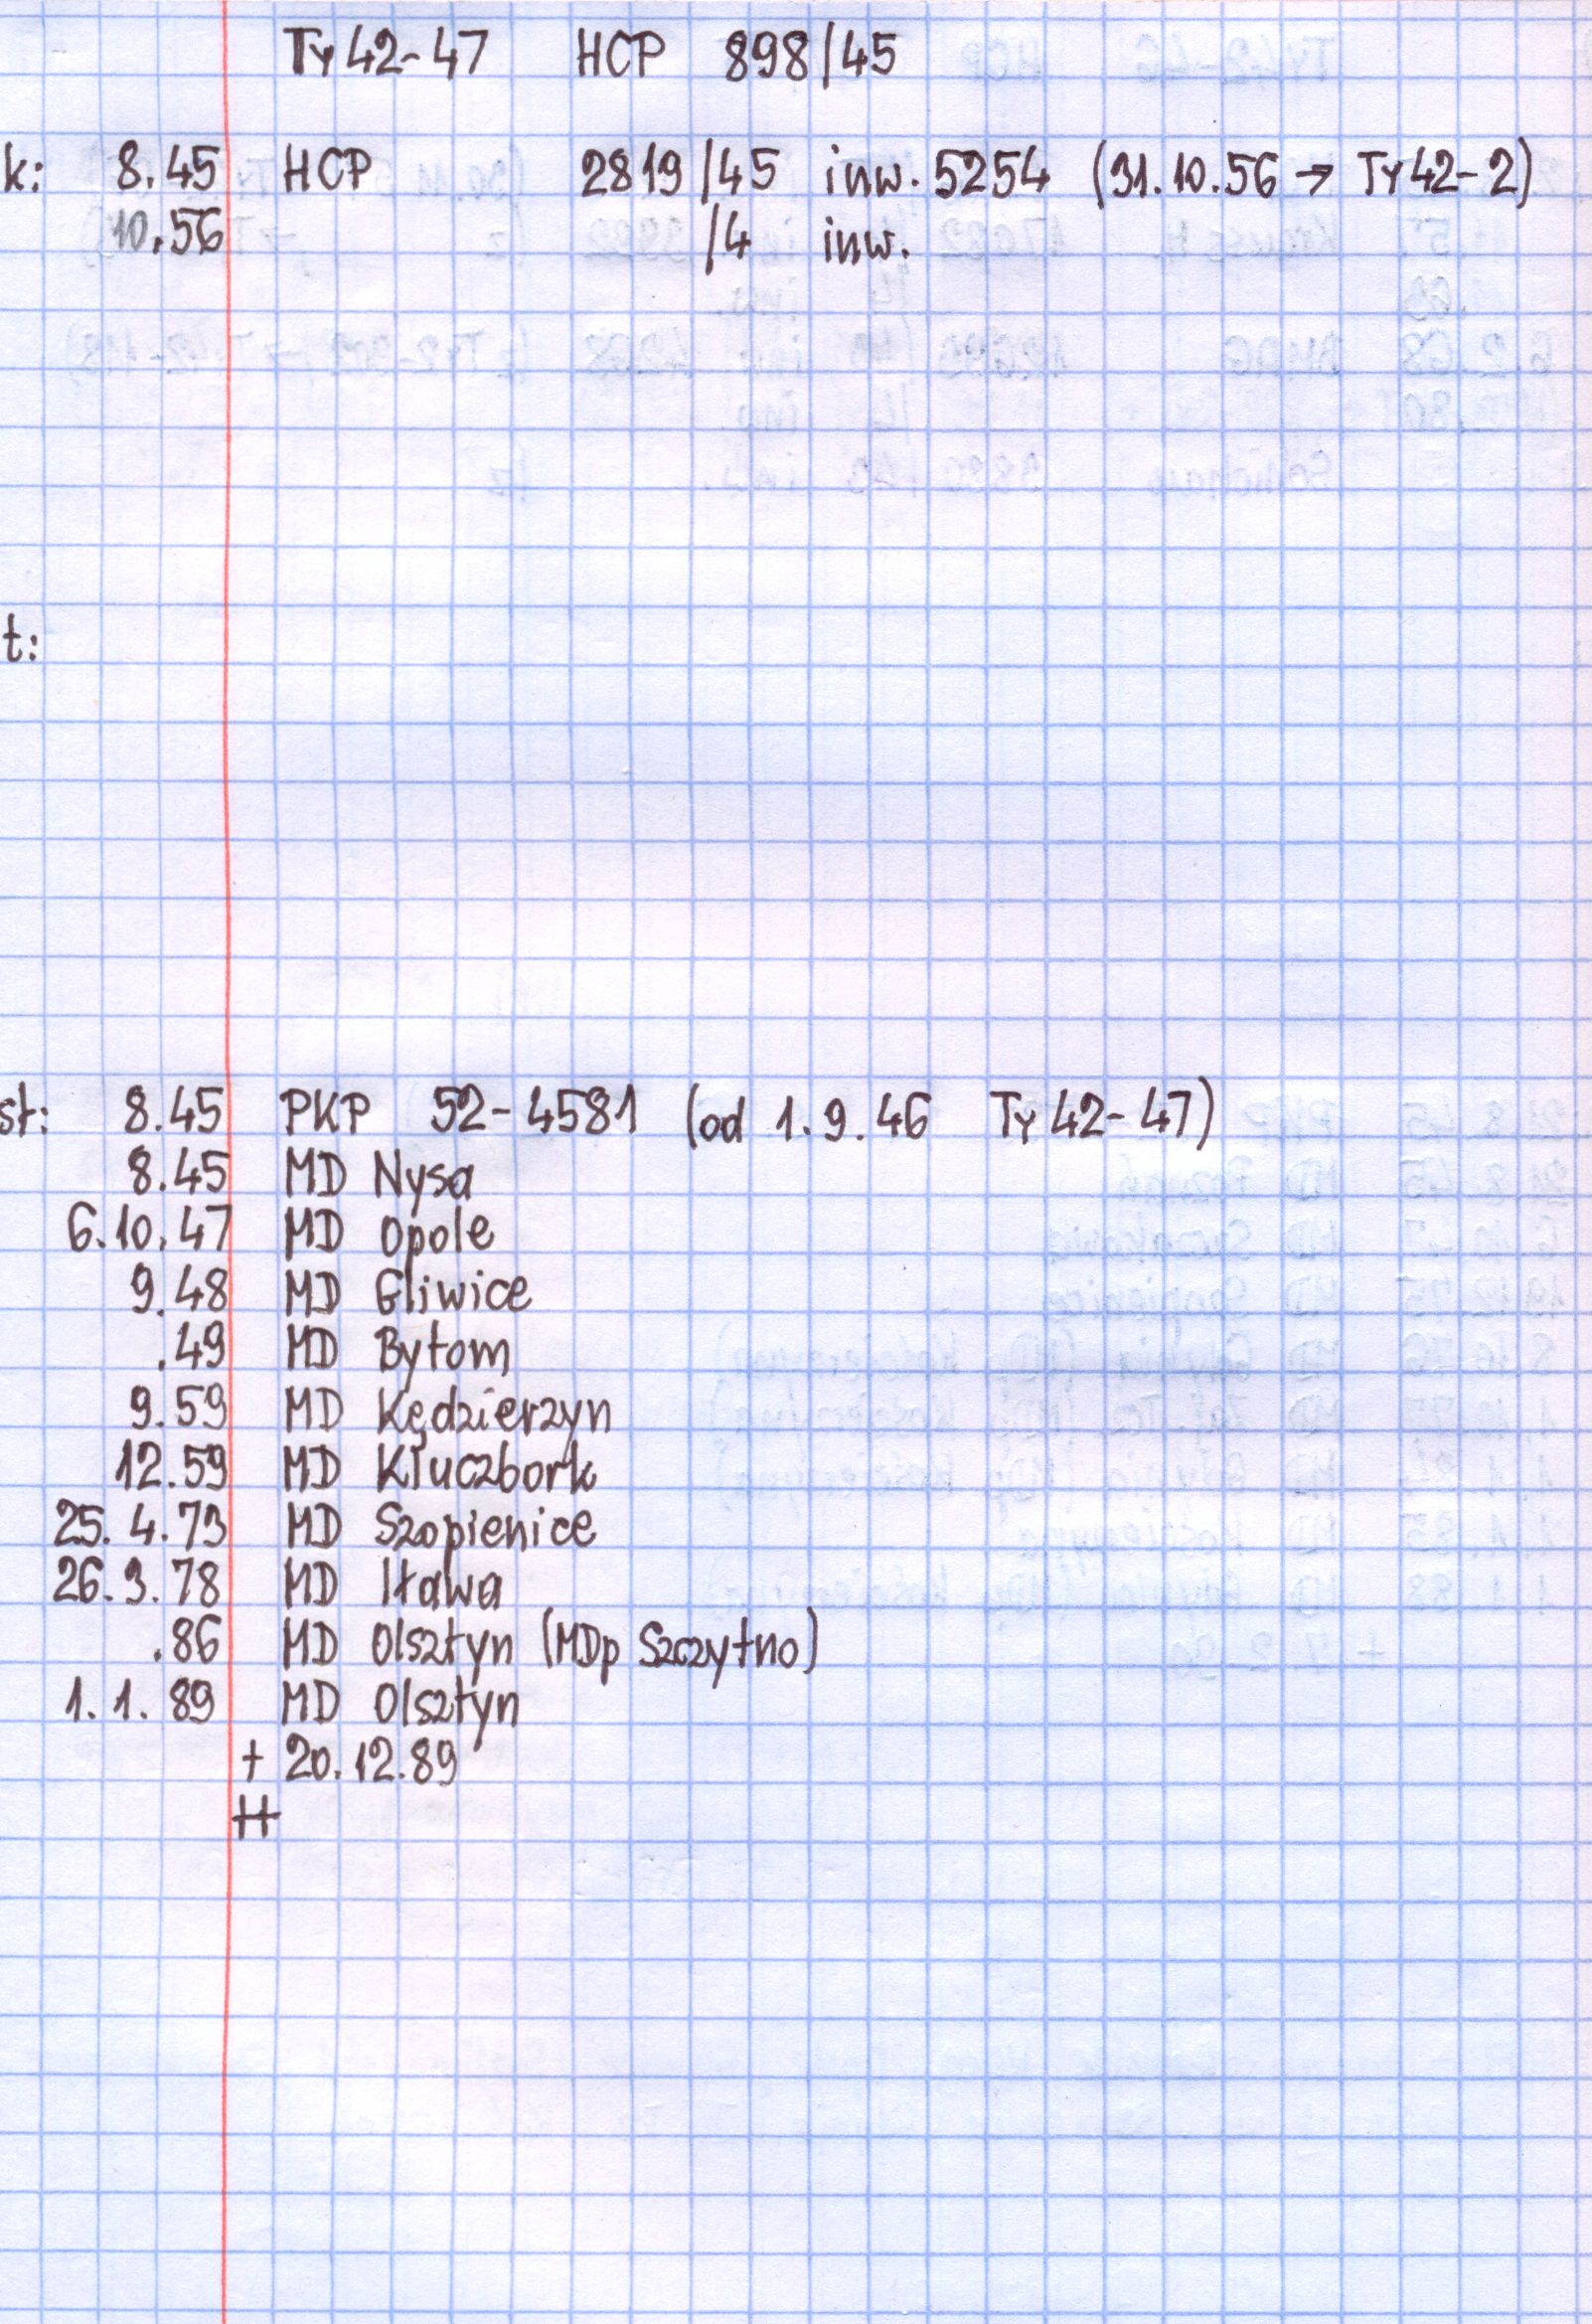 Ty42-47 HCP 898/45
k: 8.45 HCP 2819/45 inw. 5254 (31.10.56 → Ty42-2)
10.56 /4 inw.
t:
st: 8.45 PKP 52-4581 (od 1.9.46 Ty42-47)
8.45 MD Nysa
6.10.47 MD Opole
9.48 MD Gliwice
.49 MD Bytom
9.59 MD Kędzierzyn
12.59 MD Kluczbork
25.4.73 MD Szopienice
26.3.78 MD Iława
.86 MD Olsztyn (MDp Szczytno)
1.1.89 MD Olsztyn
+ 20.12.89